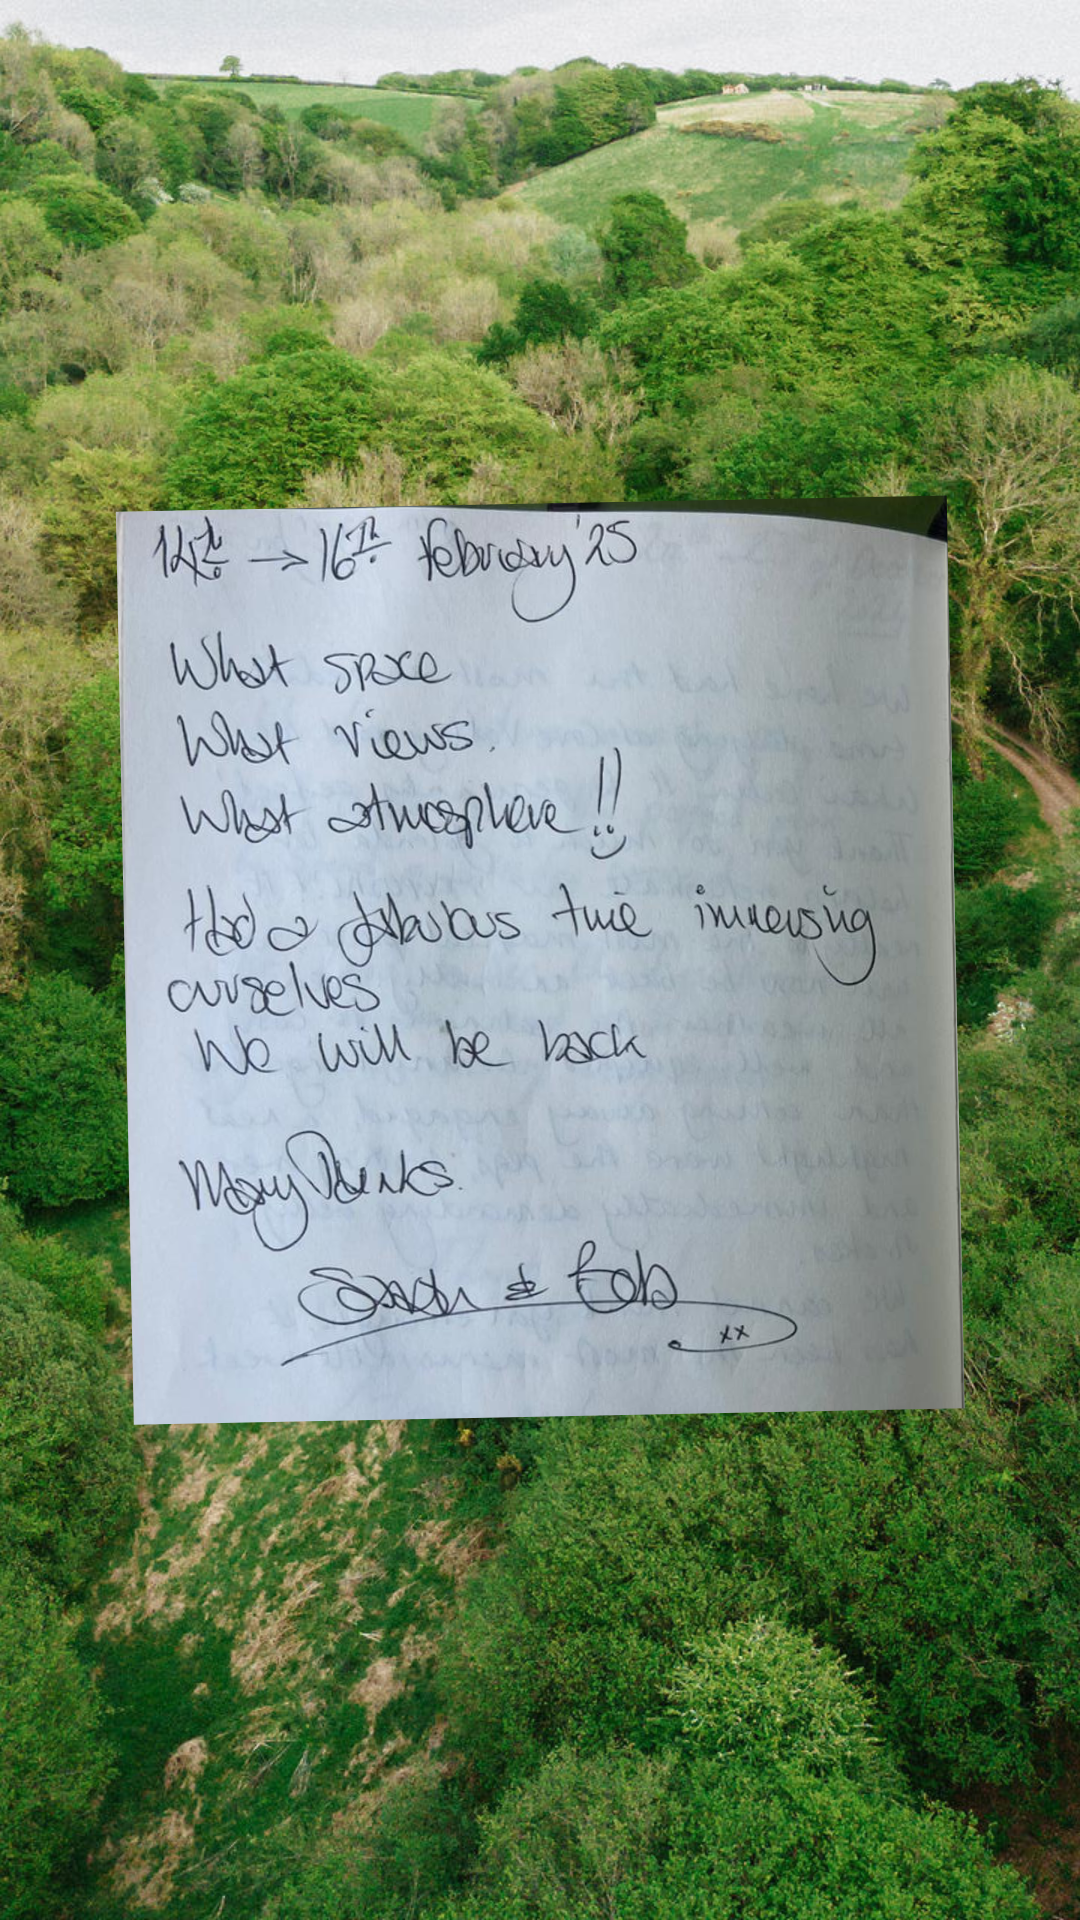 14th → 16th February '25
What space
What views.
What atmosphere!!
Had a fabulous time immersing
ourselves
We will be back
Many Thanks.
Sarah & Bob
xx